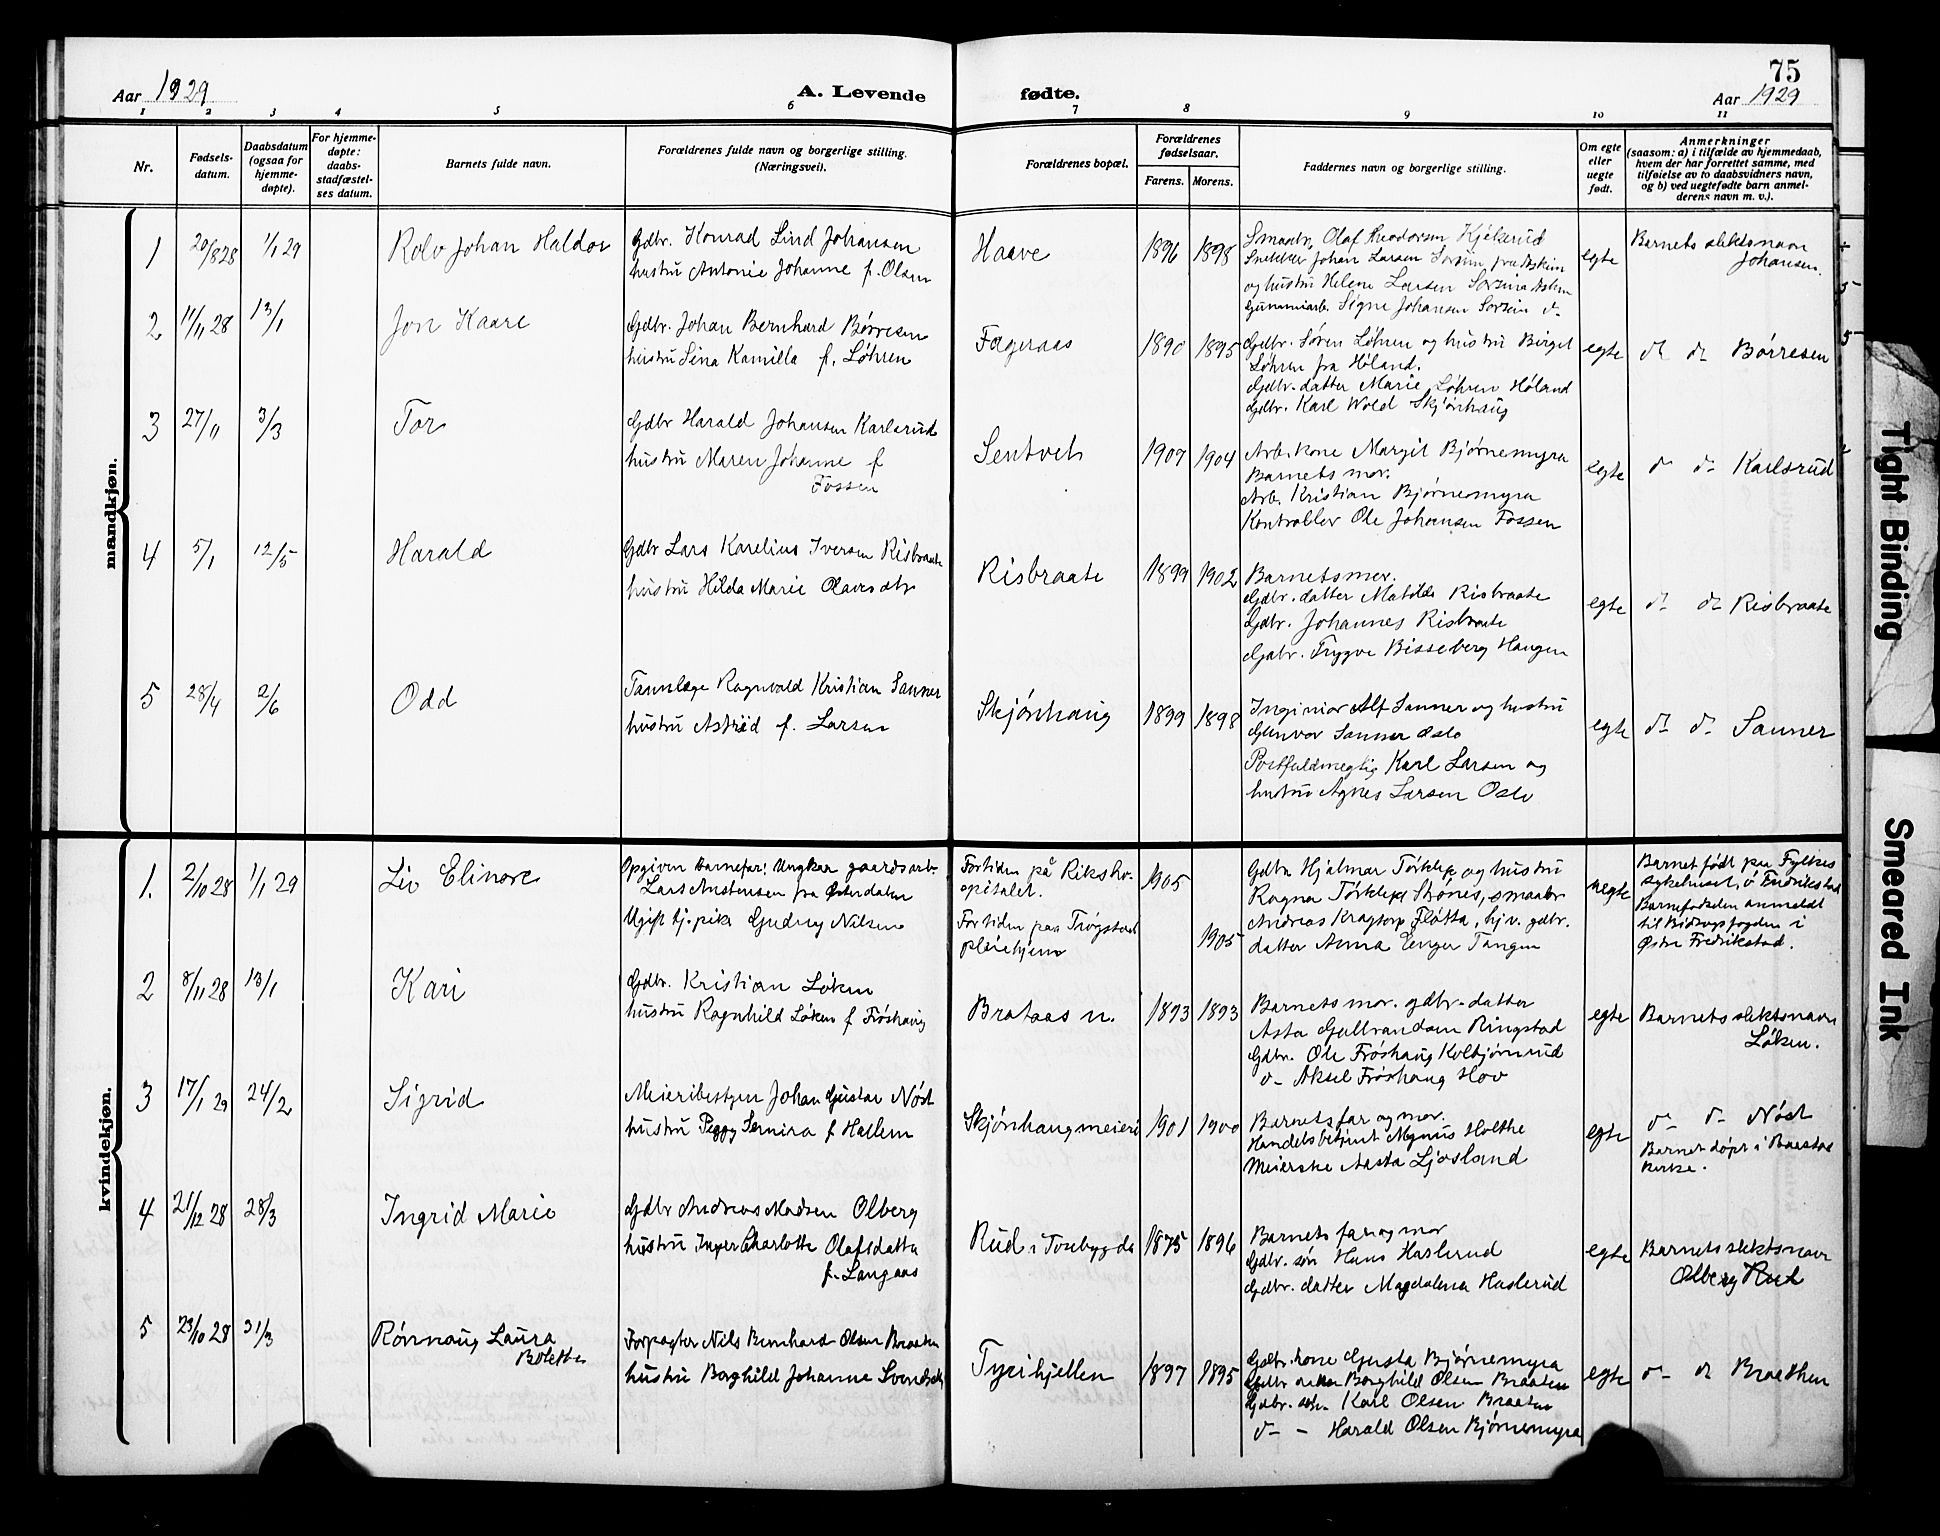 75
Aar 1929
A. Levende
fødte.
Aar 1929
1 2 3 4 5 6 7 8 9 10 11
Nr.
Fødsels-
datum.
Daabsdatum
(ogsaa for
hjemme-
døpte).
For hjemme-
døpte:
daabs-
stadfæstel-
ses datum.
Barnets fulde navn.
Forældrenes fulde navn og borgerlige stilling.
(Næringsvei).
Forældrenes bopæl.
Forældrenes
fødselsaar.
Farens.
Morens.
Faddernes navn og borgerlige stilling.
Om egte
eller
uegte
født.
Anmerkninger
(saasom: a) i tilfælde av hjemmedaab,
hvem der har forrettet samme, med
tilføielse av to daabsvidners navn,
og b) ved uegtefødte barn anmel-
derens navn m. v.).
mandkjøn.
1
20/8 28
1/1 29
Rolv Johan Haldor
Gdbr. Konrad Lind Johansen
hustru Antonie Johanne f. Olsen
Haave
1896
1898
Smaabr. Olaf Theodorsen Kjelserud
Snekker Johan Larsen fra Askim
og hustru Helene Larsen
Gummiarb. Signe Johansen
egte
Barnets slektsnavn
Johansen.
2
17/11 28
13/1
Jon Kaare
Gdbr. Johan Bernhard Børresen
hustru Lina Kamilla f. Løhren
Fagernaas
1890
1895
Gdbr. Søren Løhren og hustru Birgit
Løhren fra Høland.
Gdbr. datter Marie Løhren Høland
Gdbr. Karl Wold Skjønhaug
egte
do do Børresen
3
27/11
3/3
Tor
Gdbr Harald Johansen Karlsrud
hustru Maren Johanne f
Fossen
Sentvet
1907
1904
Arb. kone Margit Bjørnemyra
Barnets mor.
Arb. Kristian Bjørnemyra
Kontrollør Ole Johansen Fossen
egte
do do Karlsrud
4
5/1
12/5
Harald
Gdbr Lars Karelius Iversen Risbraate
hustru Hilda Marie Olavesdtr
Risbraate
1899
1902
Barnets mor.
Gdbr. datter Matilde Risbraate
Gdbr. Johannes Risbraate
Gdbr. Trygve Bisseberg Haugen
egte
do do Risbraate
5
28/4
2/6
Odd
Tannlæge Ragnvald Kristian Sanner
hustru Astrid f. Larsen
Skjønhaug
1899
1898
Ingeniør Alf Sanner og hustru
Gunvor Sanner Oslo
Postfuldmegtig Karl Larsen og
hustru Agnes Larsen Oslo
egte
do do Sanner
kvindekjøn.
1.
2/10 28
1/1 29
Liv Elinore
Opgiven Barnefar: Ungkar gaardsarb.
Lars Anstensen fra Østerdalen
Ugift tj. pike Gudny Nilsen
Fortiden på Riksho-
spitalet.
Fortiden paa Trøgstad
pleiehjem
1905
1905
Gdbr. Hjalmar Torklep og hustru
Ragna Torklep Strønes, smaabr.
Andreas Kragtorp Fløtta, hjv. gdbr.
datter Anna Enger Tangen
uegte
Barnet født paa Fylkes
sykehuset, ø Fredrikstad
Barnefødselen anmeldt
til Bidragsfogden i
Østre Fredrikstad.
2
8/11 28
13/1
Kari
Gdbr. Kristian Løken
hustru Ragnhild Løken f Frøshaug
Brataas n.
1893
1893
Barnets mor. gdbr. datter
Asta Gulbrandsen Ringstad
Gdbr. Ole Frøshaug Kolbjørnrud
do Aksel Frøshaug Hov
egte
Barnets slektsnavn
Løken.
3
17/1 29
24/2
Sigrid
Meieribestyrer Johan Gustav Nøst
hustru Peggy f Hallem
Skjønhaug meieri
1901
1900
Barnets far og mor.
Handelsbetjent Magnus Holthe
Meierske Aasta Ljosland
egte
do do Nøst
Barnet døpt i Baastad
kirke.
4
21/12 28
28/3
Ingrid Marie
Gdbr Andreas Madsen Olberg
hustru Inger Charlotte Olafsdatter
f. Langaas
Rud i Tosebygda
1875
1896
Barnets far og mor
Gdbr. søn Hans Haslerud
Gdbr. datter Magdalena Haslerud
egte
Barnets slektsnavn
Olberg Rud
5
23/10 28
31/3
Rønnaug Laura
Bolette
Forpagter Nils Bernhard Olsen Braaten
hustru Borghild Johanne Svendsdtr
Tyrihjellen
1897
1895
Gdbr. kone Gusta Bjørnemyra
Gdbr datter Borghild Olsen Braaten
Gdbr. søn Karl Olsen Braaten
do - Harald Olsen Bjørnemyra
egte
do do Braathen
Tight Binding
Smeared Ink